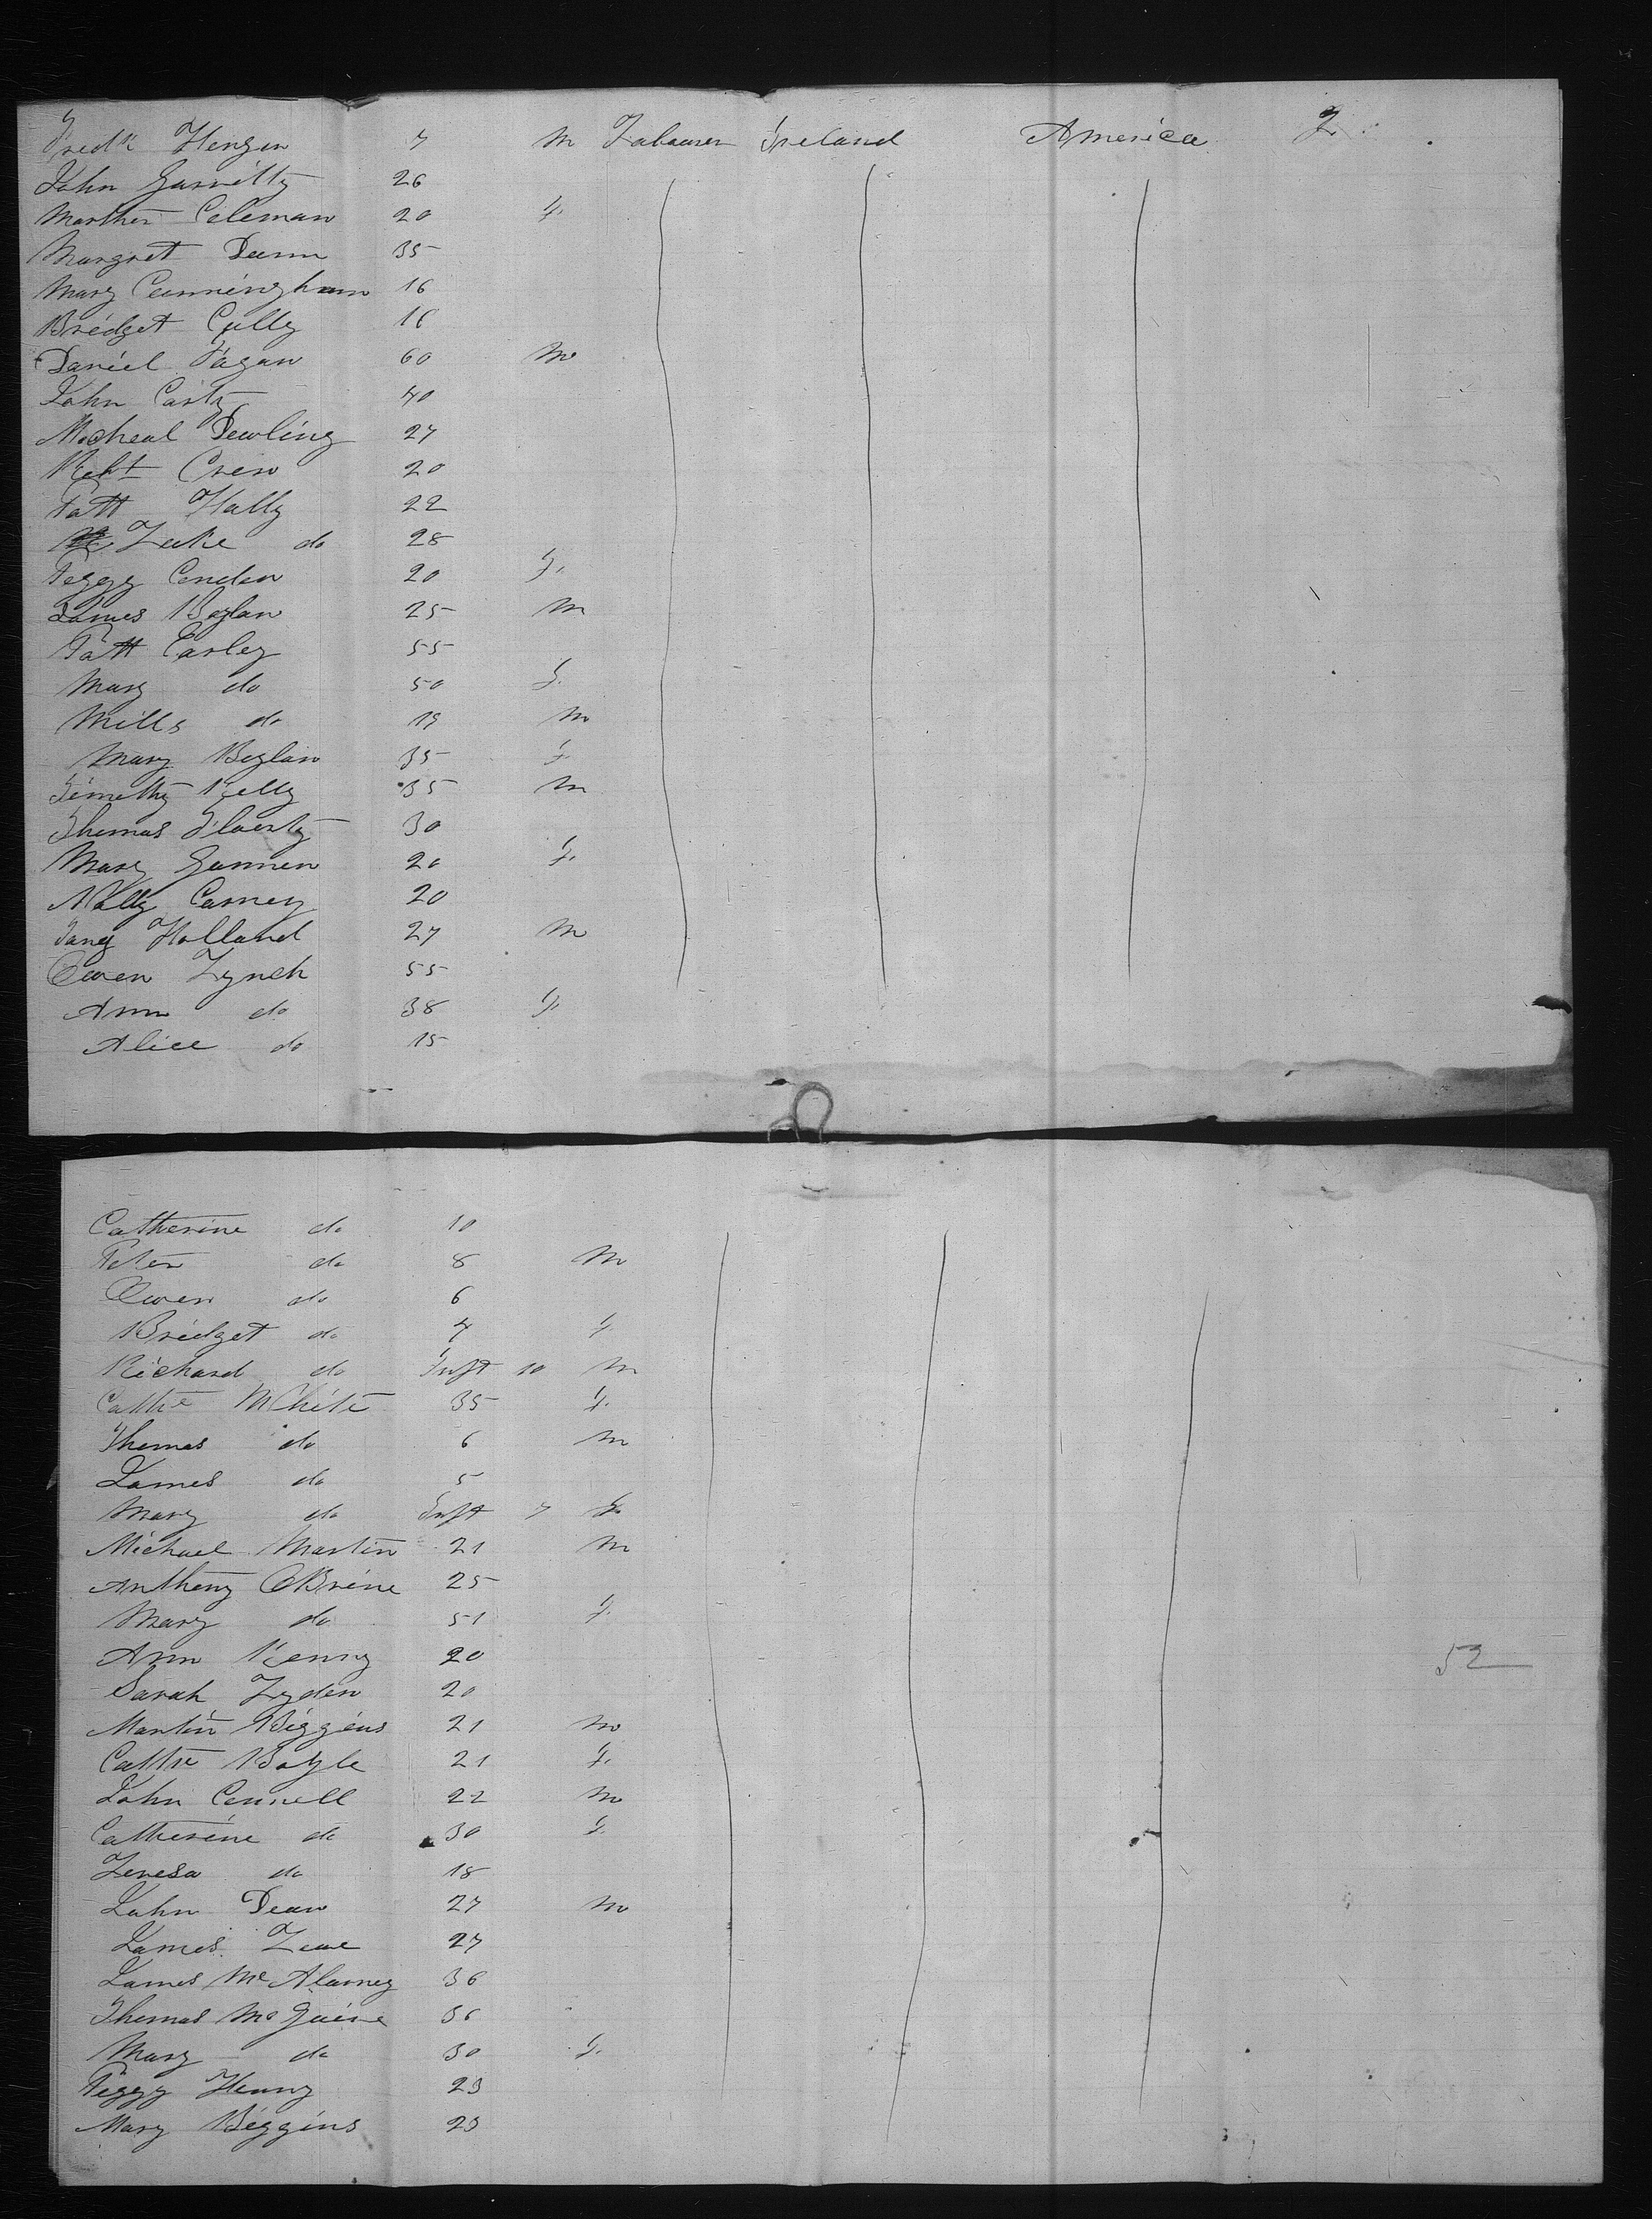 Fredk Hengen 7 M Labourer Ireland America 2
John Garrilty 26
Marther Coleman 20 F.
Margret Dunn 35
Mary Cunningham 16
Bridget Cully 16
Daniel Fagan 60 M
John Carty 40
Micheal Dowling 27
Robt Crew 20
Patt Hally 22
Luke do 28
Peggy Condon 20 F.
James Boylan 25 M
Patt Corley 55
Mary do 50 F.
Mills do 19 M
Mary Boylan 35 F
Timothy Kelly 35 M
Thomas Flaerty 30
Mary Gannon 20 F.
Nally Carney 20
Holland 27 M
Owen Lynch 55
Ann do 38 F.
Alice do 15
Catherine do 10
Peter do 8 M
Owen do 6
Bridget do 4 F
Richard do Inft 10 M
Cathe White 35 F.
Thomas do 6 M
James do 5
Mary do Inft 7 F
Michael Martin 21 M
Anthony OBrine 25
Mary do 51 F.
Ann Kenny 20
Sarah Lyden 20
Martin Biggins 21 M
Cathe Boyle 21 F.
John Connell 22 M
Catherine do 30 F.
Teresa do 18
John Dean 27 M
James 27
James Mc Alarney 36
Thomas Mc Guire 36
Mary do 30 F.
Peggy Henry 23
Mary Biggins 23
52